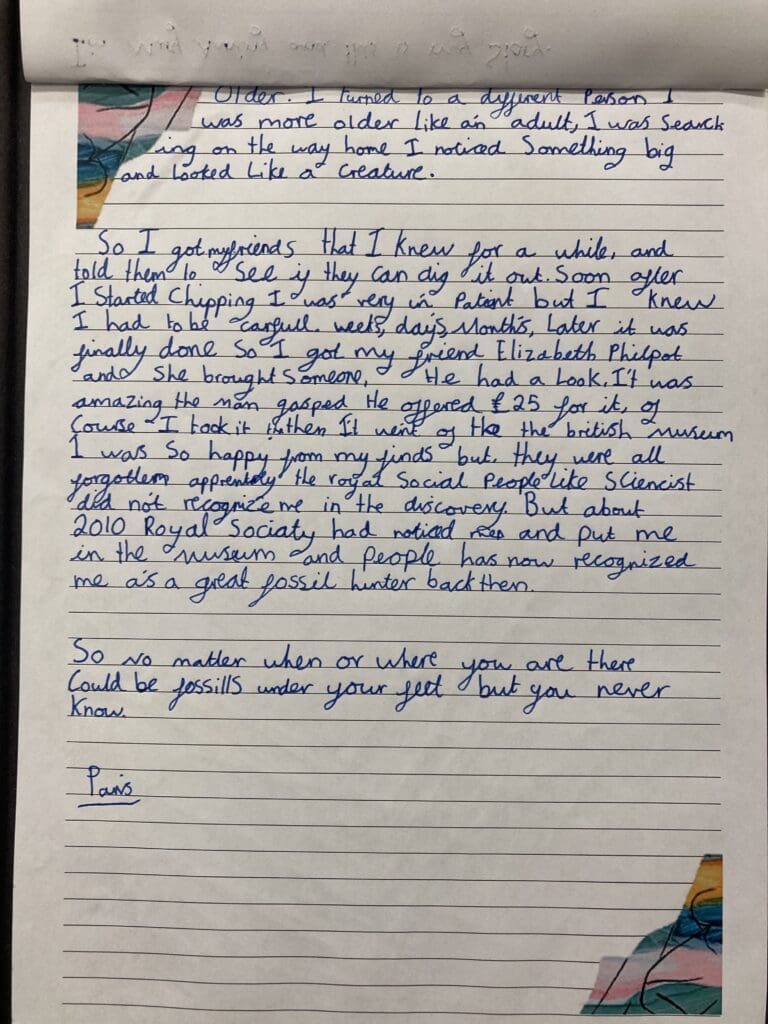 Older. I turned to a different Person I
was more older like an adult, I was Search
ing on the way home I noticed Something big
and looked Like a Creature.
So I got my friends that I knew for a while, and
told them to See if they can dig it out. Soon after
I Started Chipping I was very in Patient but I knew
I had to be carfull. weets, day's Month's, Later it was
finally done So I got my friend Elizabeth Philpot
and She brought Someone, He had a Look. It was
amazing the man gasped He offered £25 for it, of
Course I took it then It went of the british Museum
I was So happy from my finds but they were all
forgotten apprently the royal Social People Like Sciencist
did not recognize me in the discovery. But about
2010 Royal Sociaty had noticed and put me
in the Museum and people has now recognized
me as a great fossil hunter back then.
So no matter when or where you are there
Could be fossills under your feet but you never
Know.
Paris